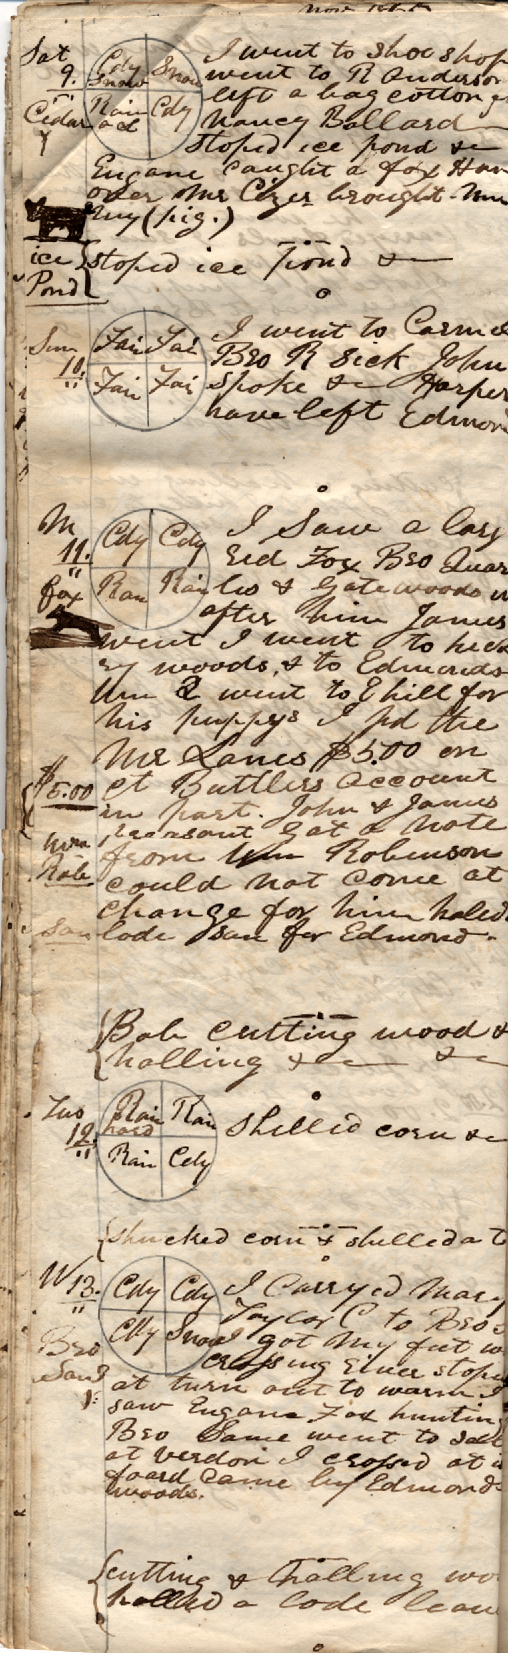 Sat
9.
Cedar
Cdy Snow
Snow
Rain
Cdy
I went to shoe shop
went to R Anderson
left a bag cotton
Nancy Ballard
stoped ice pond &
Eugane caught a fox
over Mr brought
(pig.)
ice
Pond
{stoped ice Pond &
Sun
10.
Fair Fair
Fair Fair
I went to Carm
Bro R Sick John
spoke & Harper
have left Edmon
M
11.
fox
Cdy Cdy
Ran Rain
I Saw a larg
Erd Fox Bro Quar
les & Gatewoods
after him James
went I went to hick
ry woods, & to Edmonds
Wm 2 went to E hill for
his puppys I pd the
Mr Lanes $5.00 on
$5.00
ct Buttlers account
in part. John & James
pleasant got a note
Wm
Robe
from Wm Robinson
could not come at
change for him haled
San
lode San for Edmond.
{Bob cutting wood &
halling &
Tus
12.
Rain hard
Rain
Rain
Cdy
Shelled corn &
{shucked corn & shelled a
W
13.
Cdy Cdy
Cdy Snow
I Carryed Mary
Taylor C to Bro
Bro
Sam's
I got my feet
crossing River stoped
at turn out to warm I
saw Eugane Fox huntin
Bro Same went to
at verdon I crossed at
foard Came by Edmond
woods.
{cutting & halling wo
halled a lode